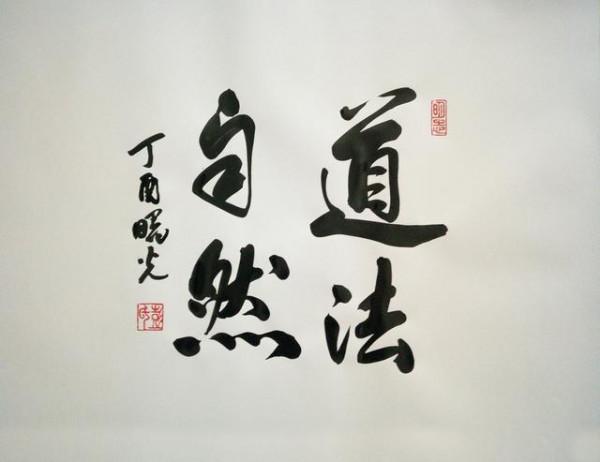 道法
自然
丁酉曙光